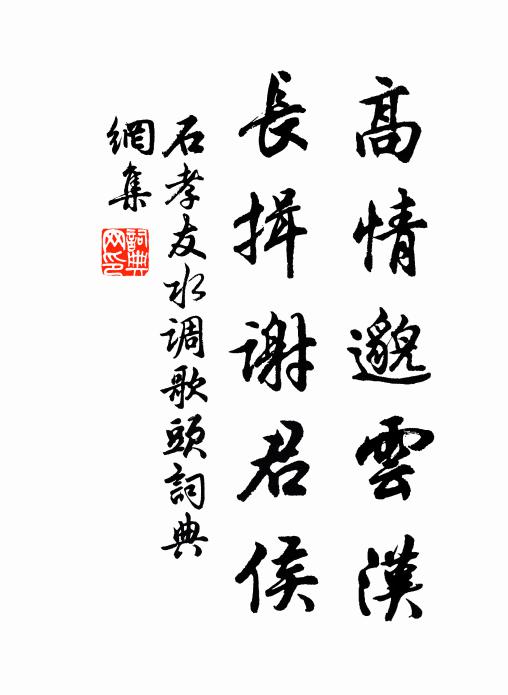 高情邈雲漢
長揖謝君侯
石孝友水调歌頭詞典
網集
詞典網印